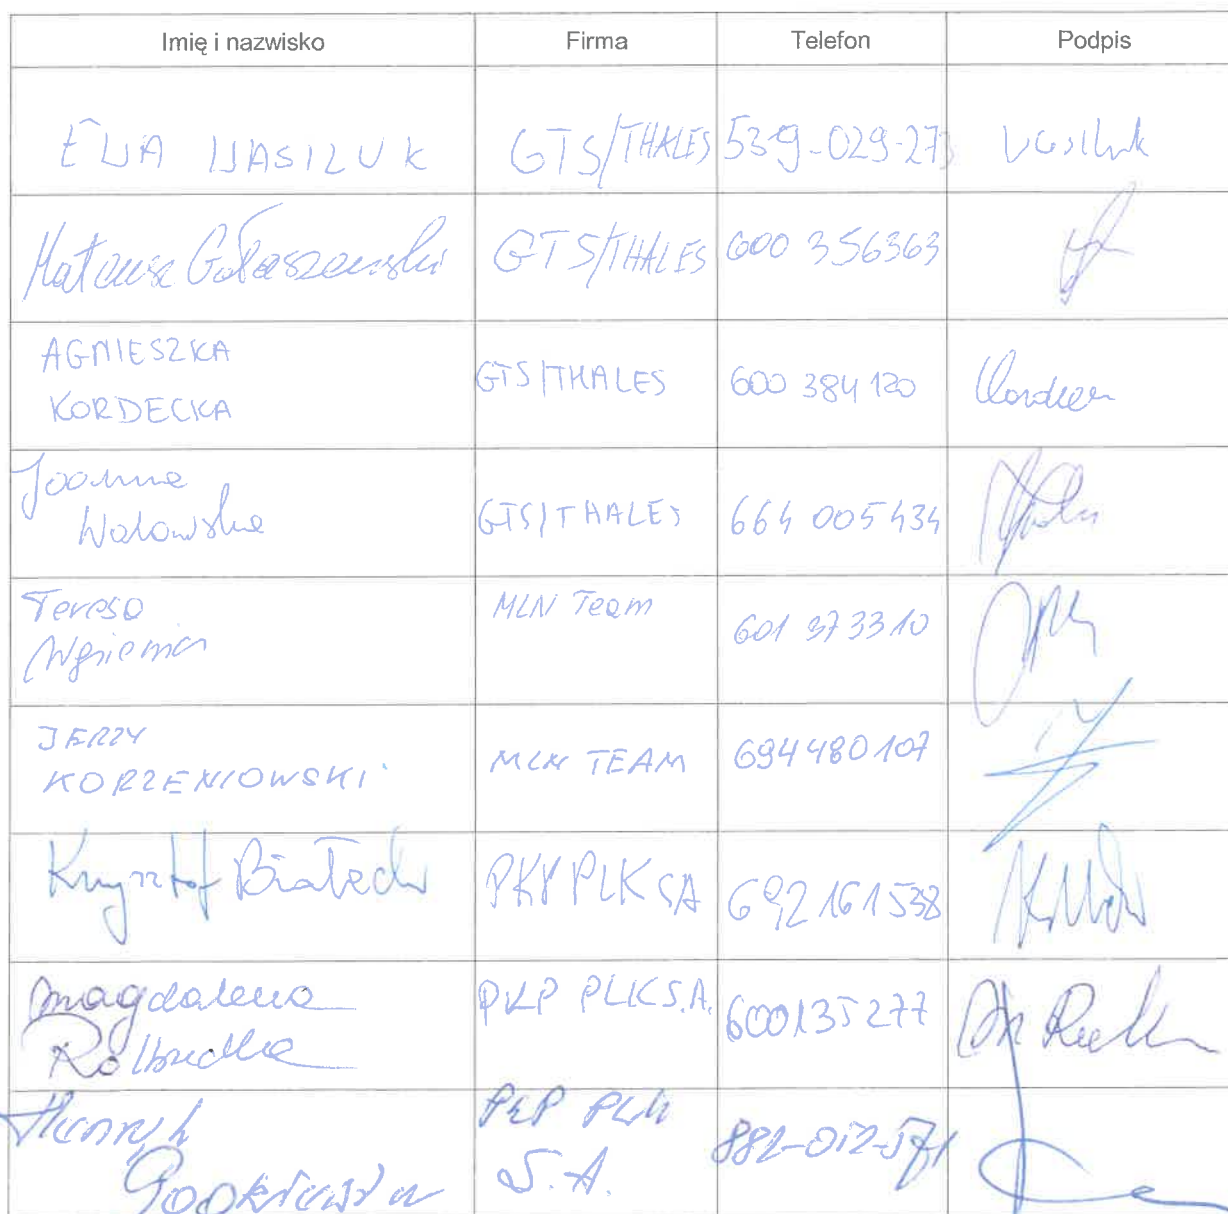 Imię i nazwisko Firma Telefon Podpis
EWA WASILUK GTS/THALES 539-029-273 Wasiluk
Mateusz Gołaszewski GTS/THALES 600 356363
AGNIESZKA
KORDECKA GTS/THALES 600 384 120
Joanna
Wolowska GTS/THALES 664 005 434
Teresa MLN Team
601 373310
JERZY
KORZENIOWSKI MLN TEAM 694 480 107
Krzysztof Białecki PKP PLK SA 692 161 538
Magdalena PKP PLK S.A. 600135277
Henryk PKP PLK
S.A. 882-012-571